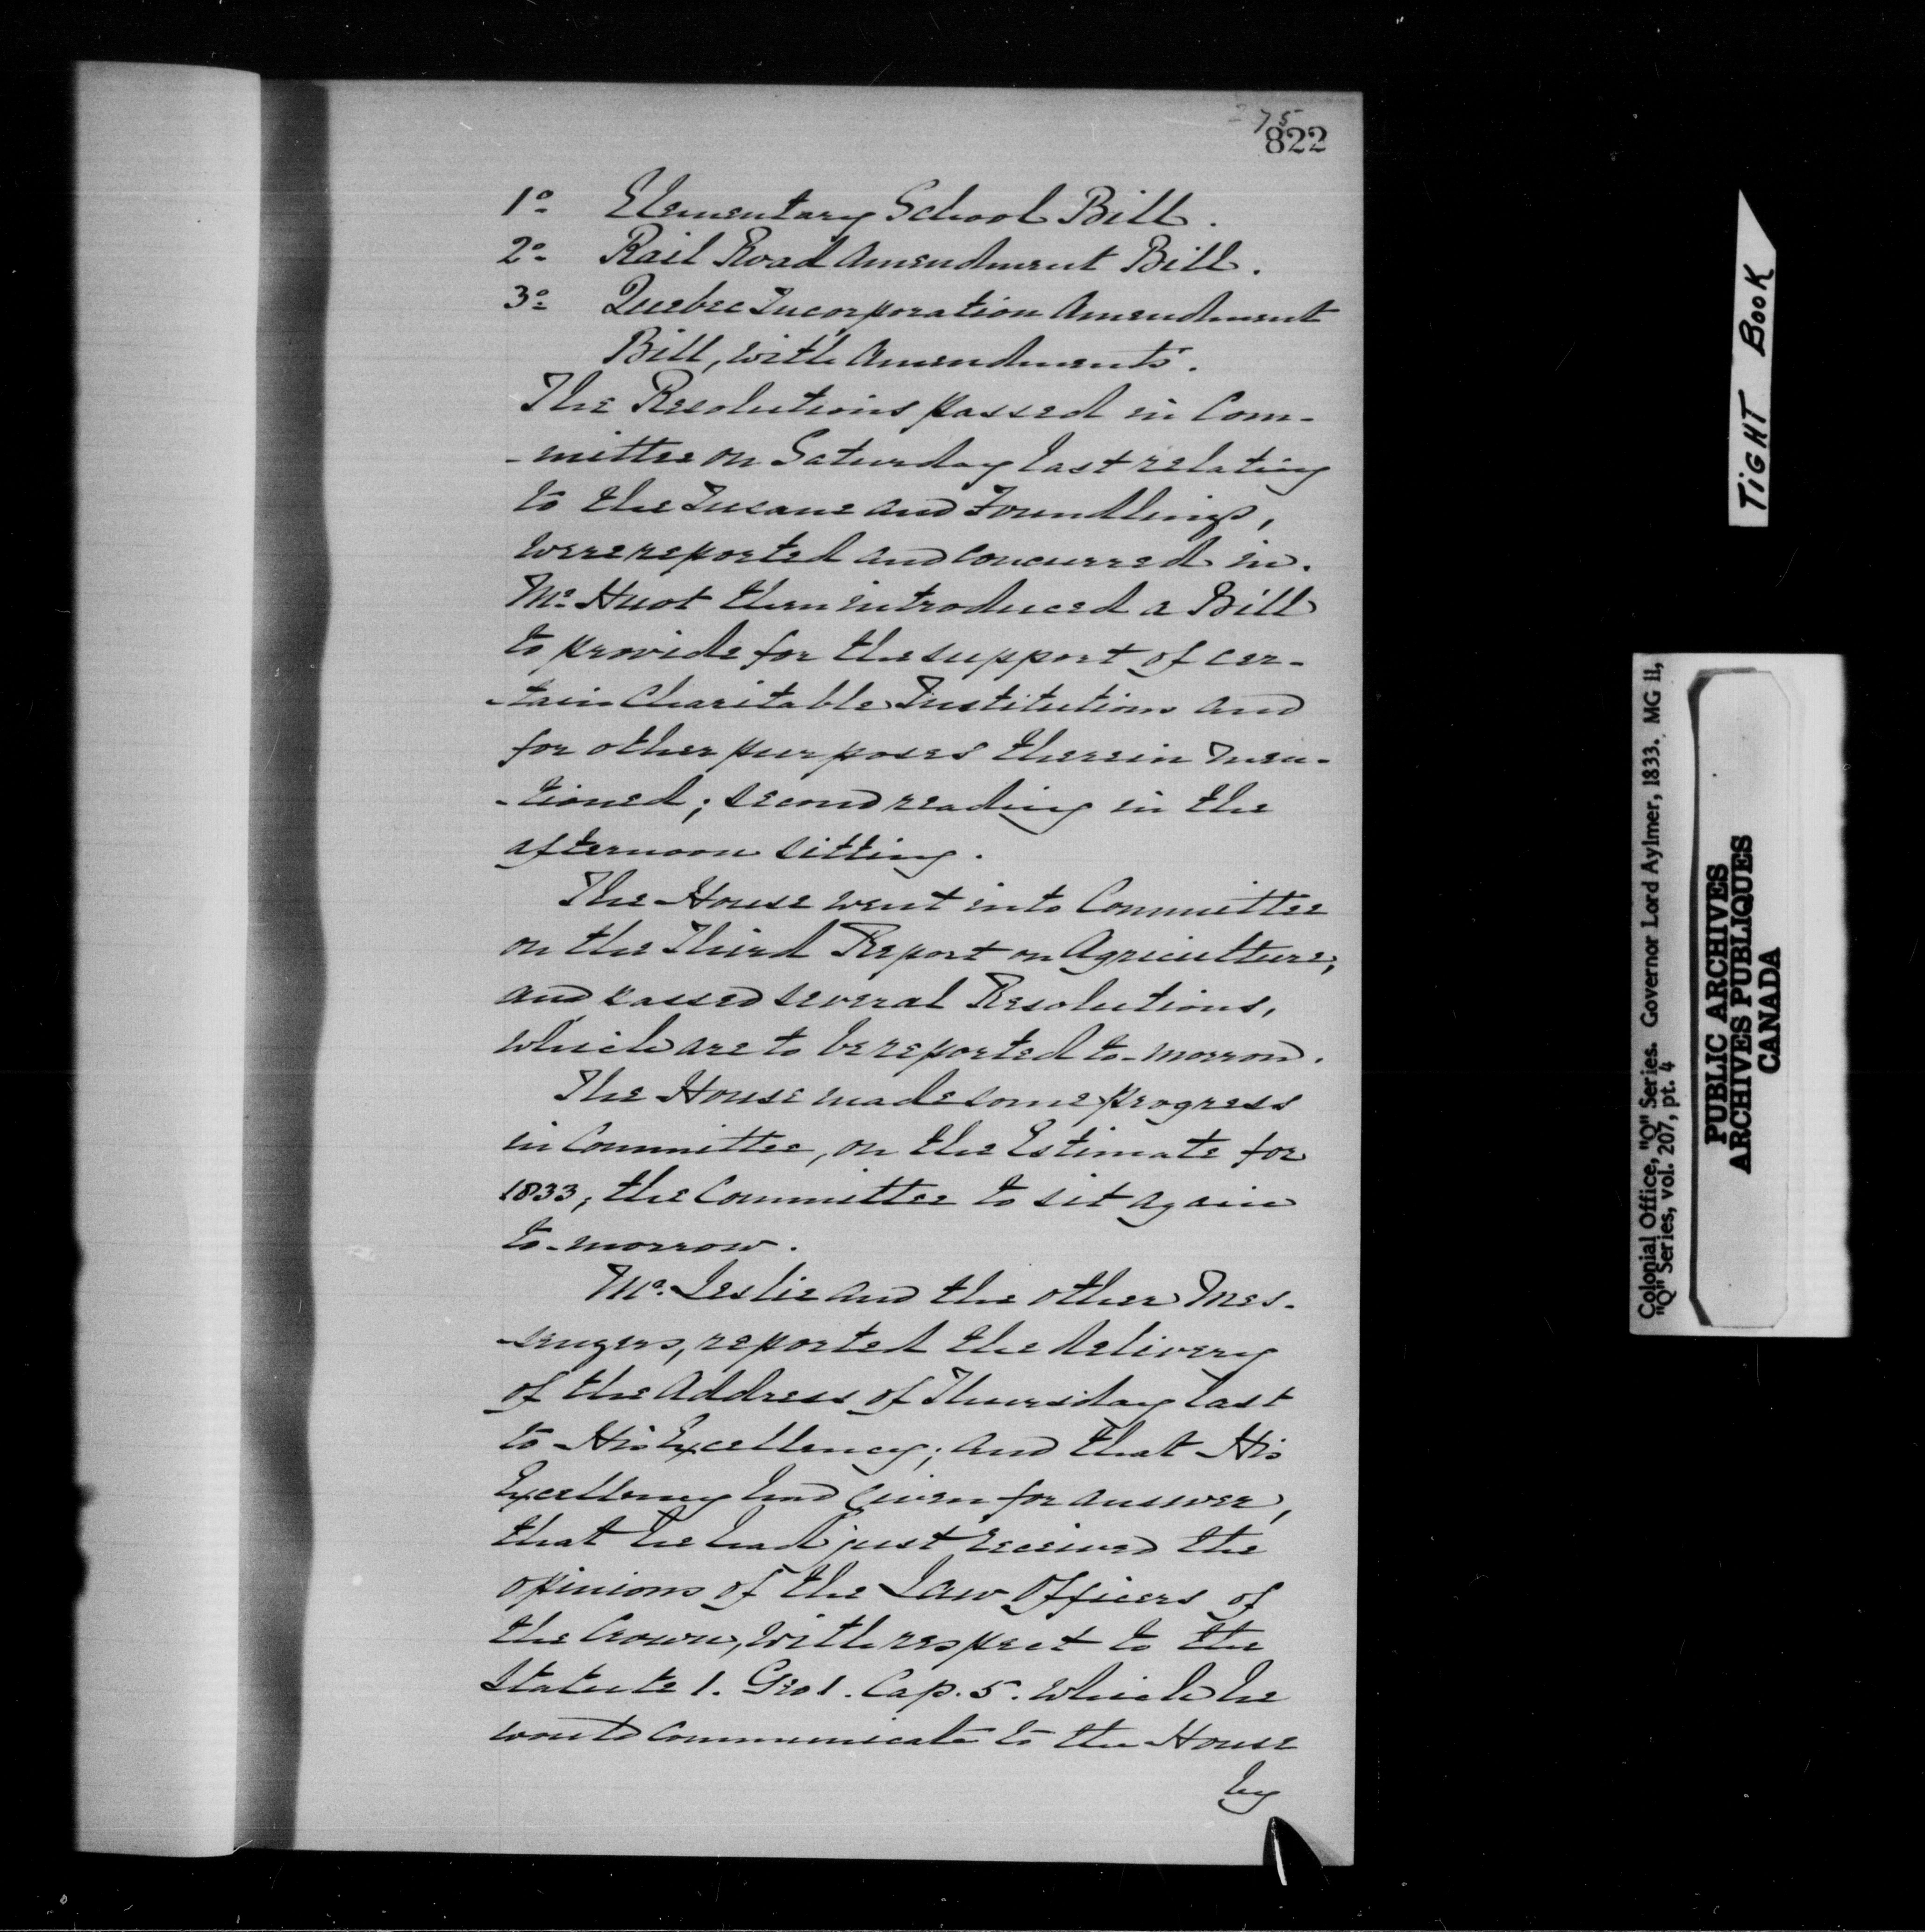 275
822
1º Elementary School Bill.
2º Rail Road Amendment Bill.
3º Quebec Incorporation Amendment
Bill, with Amendments.
The Resolutions passed in Com-
-mittee on Saturday last relating
to the Insane and Foundlings,
were reported and concurred in.
Mr. Huot then introduced a Bill
to provide for the support of cer-
-tain Charitable Institutions and
for other purposes therein men-
-tioned; second reading in the
afternoon sitting.
The House went into Committee
on the Third Report on Agriculture,
and passed several Resolutions,
which are to be reported to-morrow.
The House made some progress
in Committee, on the Estimate for
1833, the Committee to sit again
to-morrow.
Mr. Leslie and the other Mes-
-sengers, reported the delivery
of the Address of Thursday last
to His Excellency; and that His
Excellency had given for answer,
that he had just received the
opinions of the Law Officers of
the Crown, with respect to the
Statute 1. Geo 1. Cap. 5. which he
would communicate to the House
by
TIGHT BOOK
Colonial Office, "Q" Series. Governor Lord Aylmer, 1833. MG 11,
"Q" Series, vol. 207, pt. 4
PUBLIC ARCHIVES
ARCHIVES PUBLIQUES
CANADA